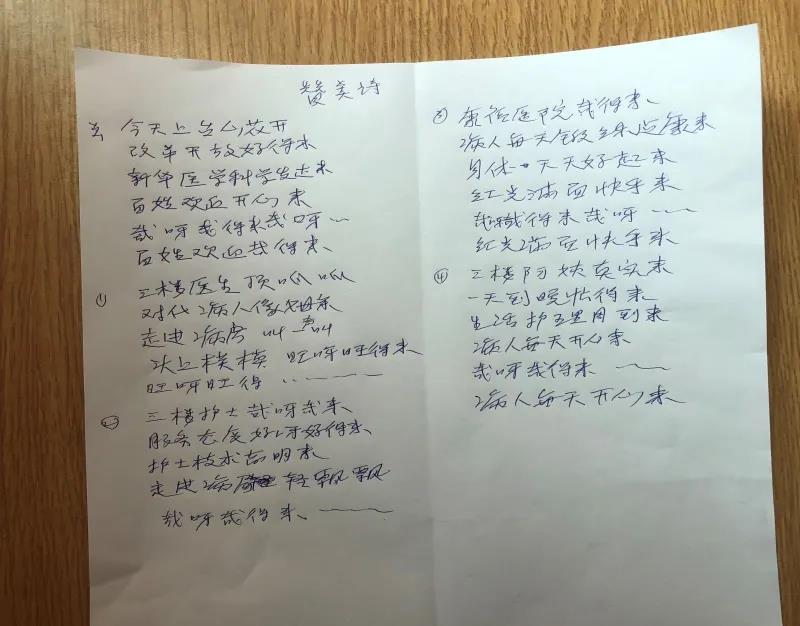 赞美诗
今天上台心花开
改革开放好得来
新华医学科学发达来
百姓欢血开心来
哉呀哉得来哉呀
百姓欢血哉得来
① 三楼医生顶呱呱
对代病人像母亲
走进病房
头上模模 旺呀旺得来
旺呀旺得
② 三楼护士哉呀哉来
服务态度好呀好得来
护士技术高明来
走进病 轻飘飘
哉呀哉得来
③ 康复医院哉得来
病人每天锻练恢康来
身体天天好起来
红光满面快乎来
哉得来哉呀
红光满面快乎来
④ 三楼阿姨真实来
一天到晚忙得来
生活护理周到来
病人每天开心来
哉呀哉得来
病人每天开心来